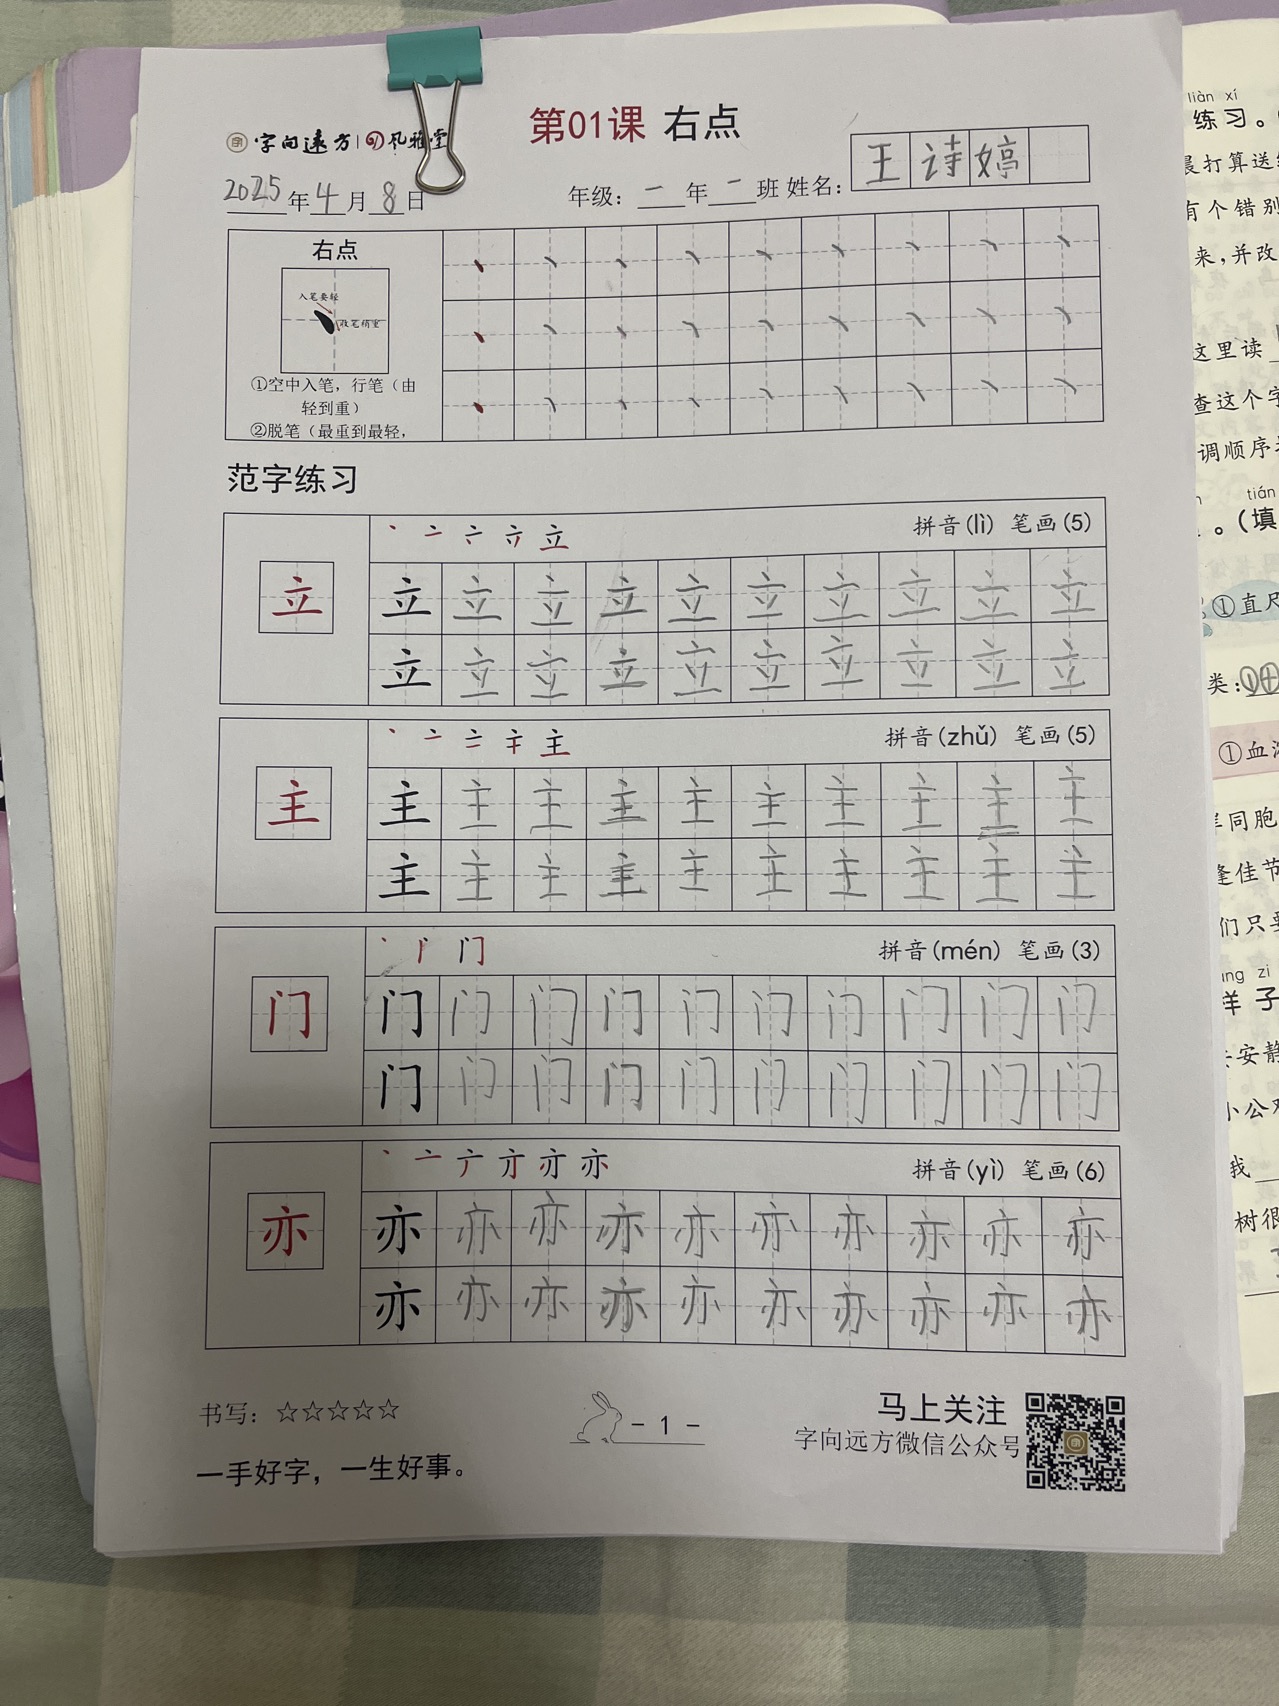 第01课 右点
字向远方 风雅堂
2025年4月8日
年级：一年一班 姓名：王诗婷
右点
入笔要轻
收笔稍重
①空中入笔，行笔（由
轻到重）
②脱笔（最重到最轻，
范字练习
丶 亠 立 拼音(lì) 笔画(5)
立 立 立 立 立 立 立 立 立 立 立
立 立 立 立 立 立 立 立 立 立
丶 亠 主 拼音(zhǔ) 笔画(5)
主 主 主 主 主 主 主 主 主 主 主
主 主 主 主 主 主 主 主 主 主
丶 门 拼音(mén) 笔画(3)
门 门 门 门 门 门 门 门 门 门 门
门 门 门 门 门 门 门 门 门 门
丶 亠 亦 拼音(yì) 笔画(6)
亦 亦 亦 亦 亦 亦 亦 亦 亦 亦 亦
亦 亦 亦 亦 亦 亦 亦 亦 亦 亦
书写：☆☆☆☆☆
一手好字，一生好事。
- 1 -
马上关注
字向远方微信公众号
liàn xí
练习。
晨打算送
有个错别
来，并改
这里读
查这个字
调顺序
tián
。（填
①直尺
类：①
①血
同胞
逢佳节
们只要
zi
样子
安静
小公
我
树很